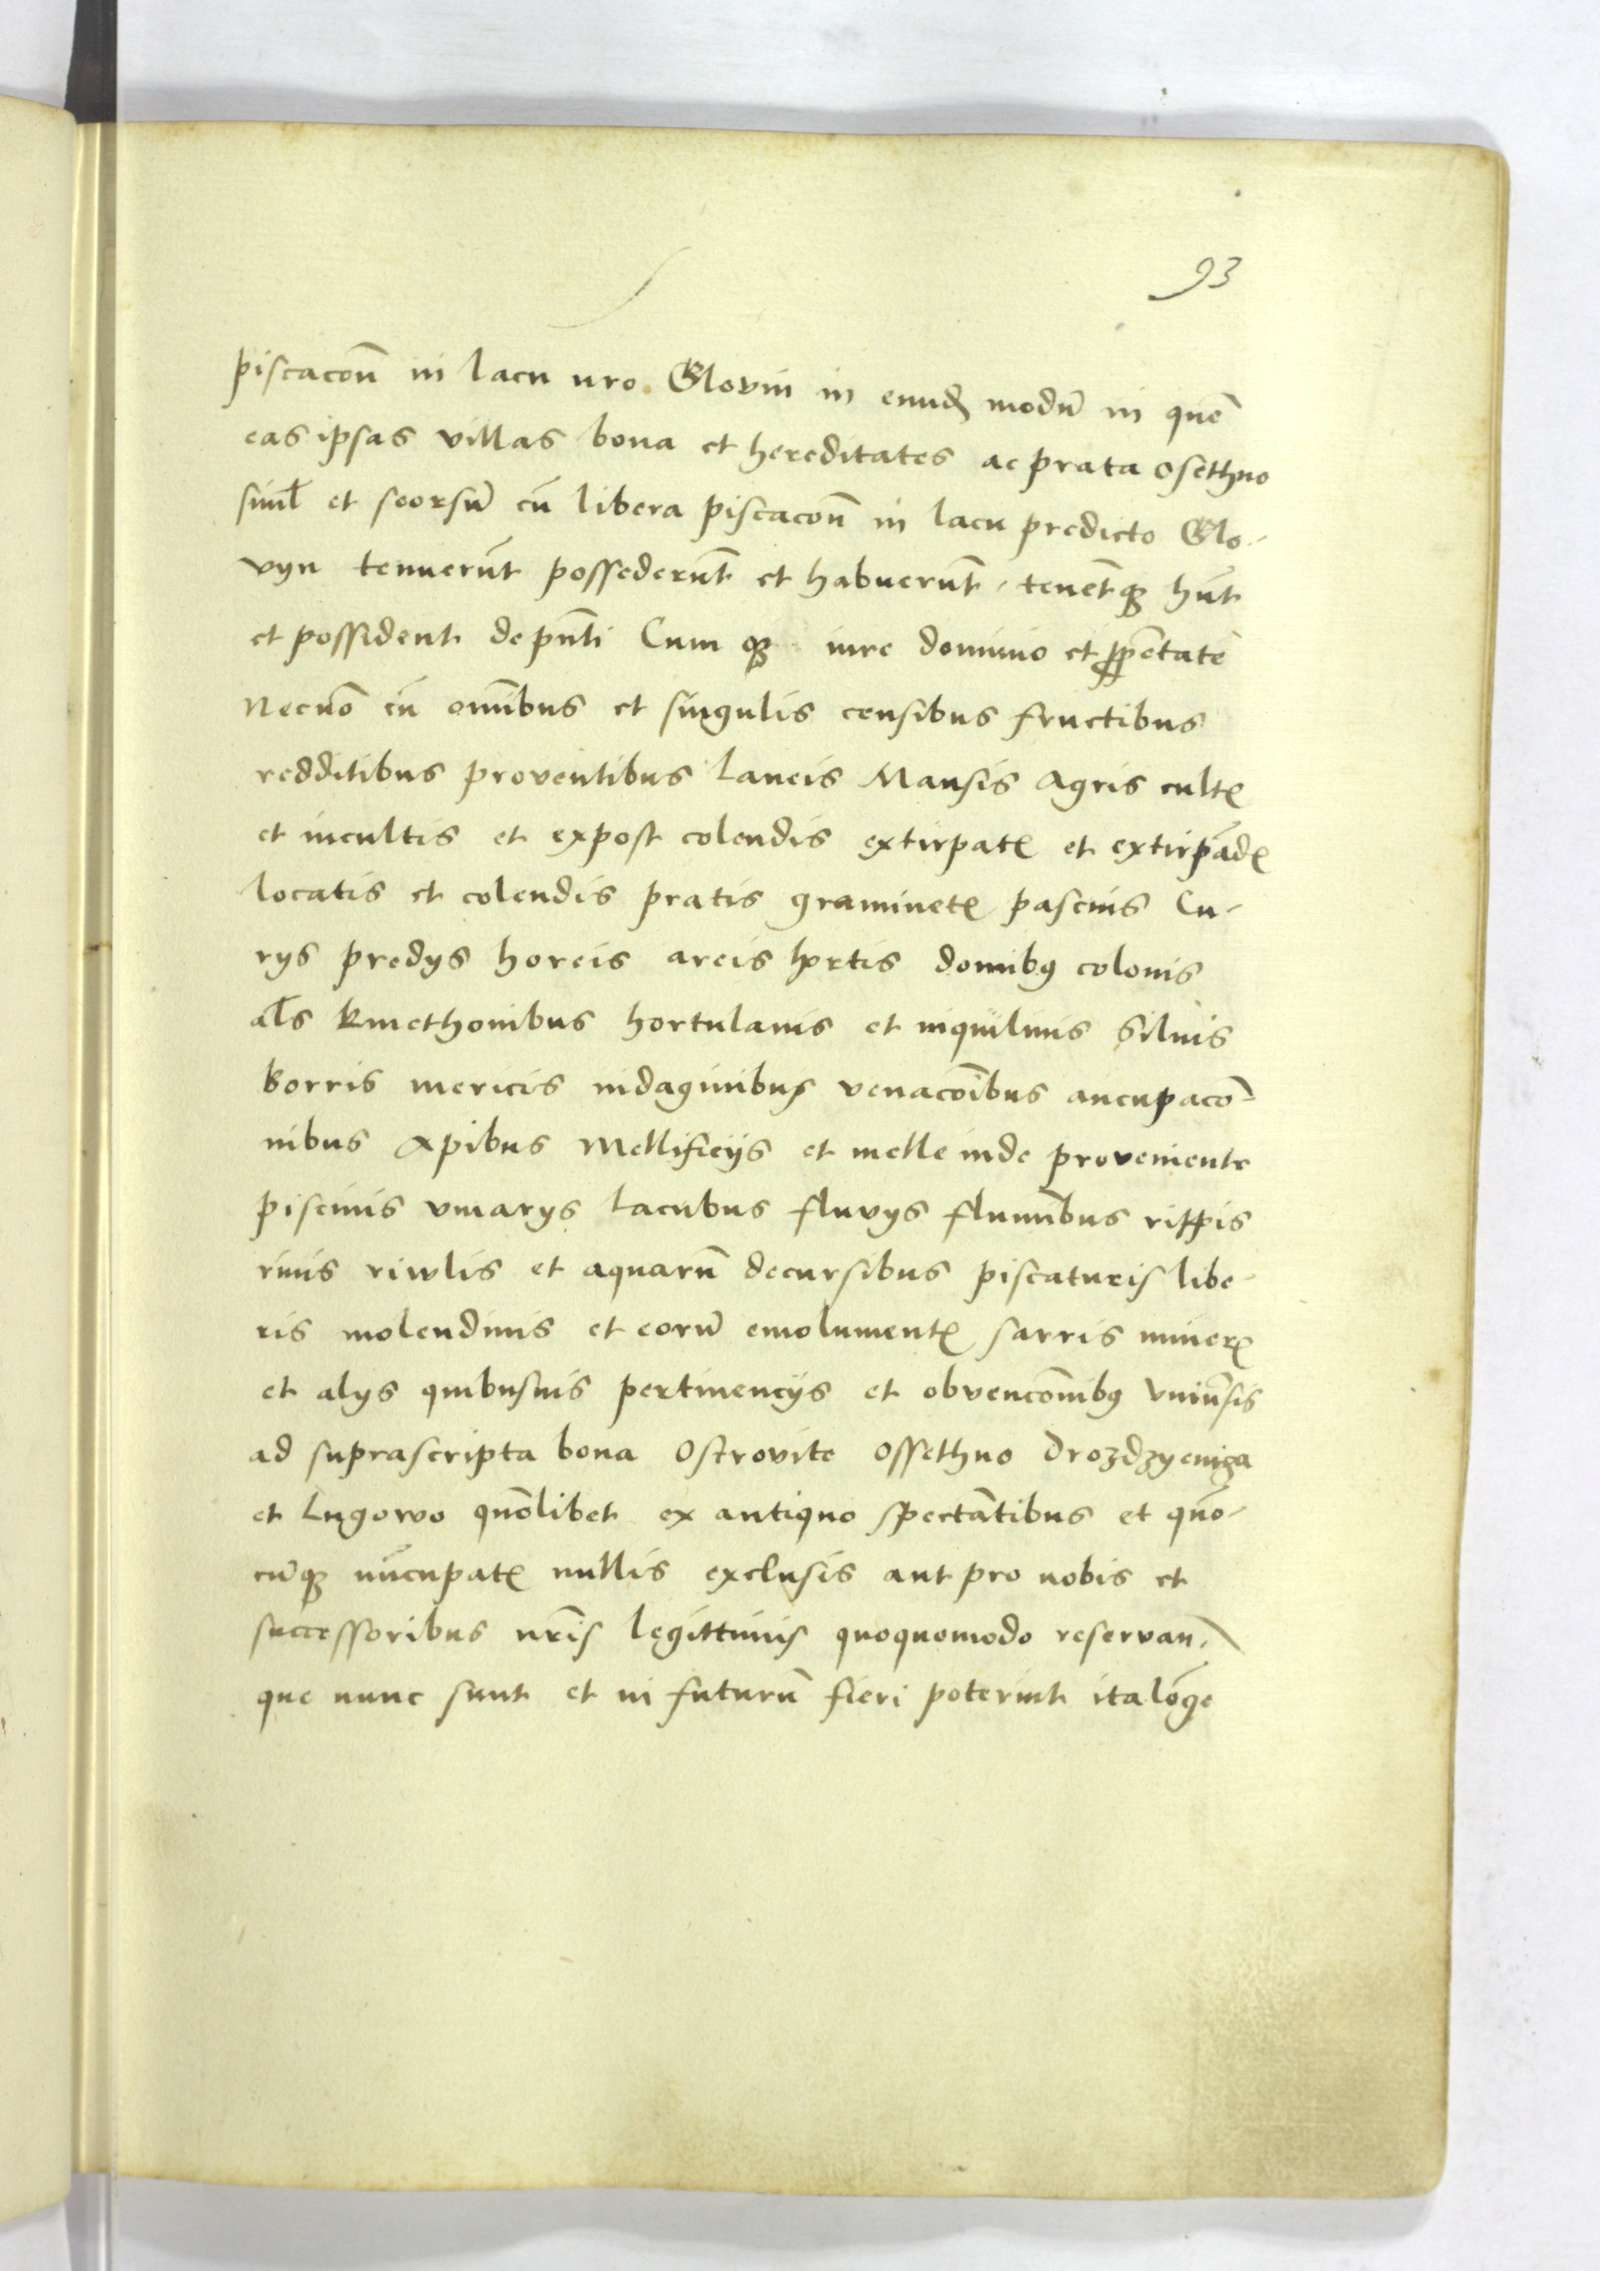 93
piscacoñ in lacu nro Glovin in eundẽ modũ in quẽ
eas ipsas villas bona et hereditates ac prata Osethno
siml̃ et seorsũ cũ libera piscacoñ in lacu predicto Glo-
vyn tenuerũt possederũt et habuerũt tenẽtqȝ hñt
et possident de pñti Cum qȝ iure dominio et
Necnõ cũ om̃ibus et singulis censibus fructibus
redditibus proventibus Laneis Mansis Agris cultꝭ
et incultis et expost colendis extirpatꝭ et extirpãdꝭ
locatis et colendis pratis graminetꝭ pascuis Cu-
rys predys horeis areis hortis domibꝰ colonis
al̃s kmethonibus hortulanis et inquilinis Siluis
borris mericis indaginibus venacõibus aucupacõ-
nibus Apibus Mellificijs et melle inde proveniente
piscinis vinarys Lacubus fluvys flumĩbus rippis
riuis riwlis et aquarũ decursibus piscaturis libe-
ris molendinis et eorũ emolumentꝭ sarris minerꝭ
et alys quibusuis pertinencijs et obvencõnibꝰ vniũsis
ad suprascripta bona Ostrovite Ossethno Drozdzyeniza
et Lugowo quõlibet ex antiquo spectãtibus et quõ-
cũqȝ nũcupatꝭ nullis exclusis aut pro nobis et
successoribus nr̃is legittimis quoquomodo reservan̄
que nunc sunt et in futurũ fieri poterint ita lõge